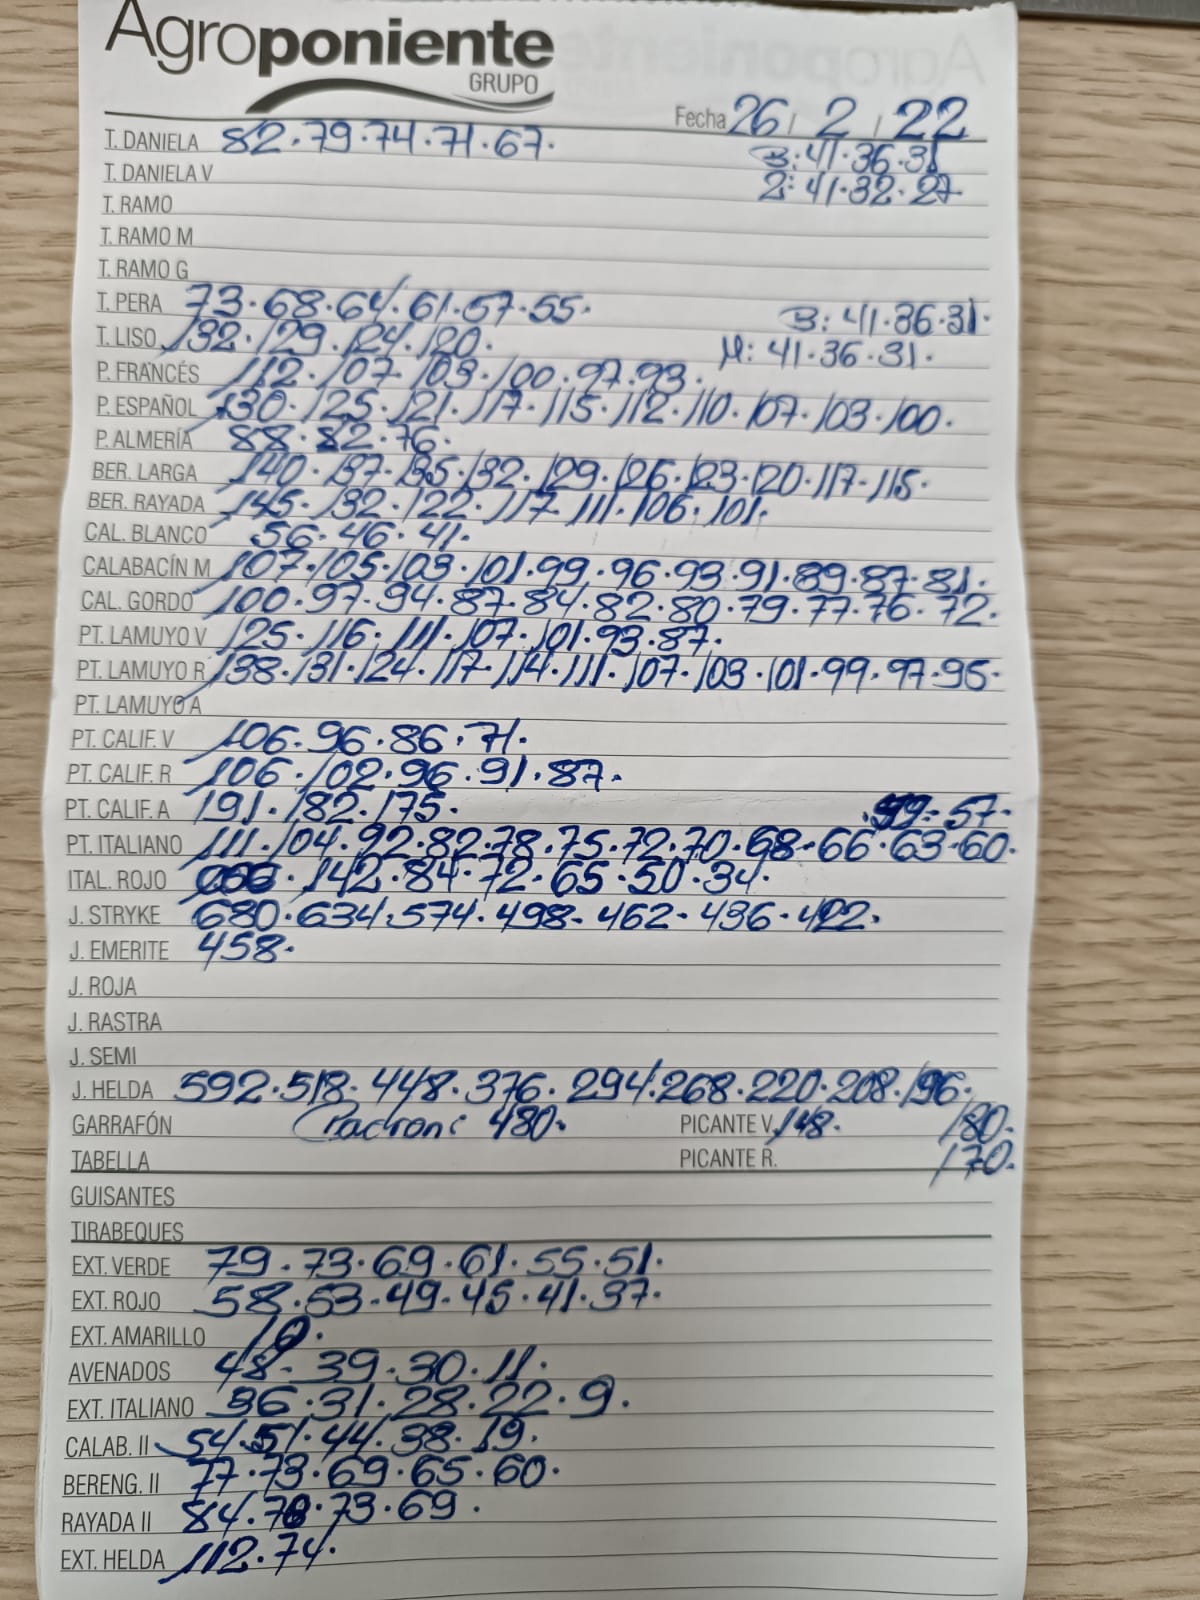 Agroponiente
GRUPO
Fecha 26 / 2 / 22
T. DANIELA 82.79.74.71.67.
B: 41.36.31
T. DANIELA V
2: 41.32.27
T. RAMO
T. RAMO M
T. RAMO G
T. PERA 73.68.64.61.57.55. B: 41.36.31.
T. LISO 132.129.124.120. M: 41.36.31.
P. FRANCÉS 112.107.103.100.97.93.
P. ESPAÑOL 130.125.121.117.115.112.110.107.103.100.
P. ALMERÍA 88.82.76.
BER. LARGA 140.137.135.132.129.126.123.120.117.115.
BER. RAYADA 145.132.122.117.111.106.101.
CAL. BLANCO 56.46.41.
CALABACÍN M 107.105.103.101.99.96.93.91.89.87.81.
CAL. GORDO 100.97.94.87.84.82.80.79.77.76.72.
PT. LAMUYO V 125.116.111.107.101.93.87.
PT. LAMUYO R 138.131.124.117.114.111.107.103.101.99.97.95.
PT. LAMUYO A
PT. CALIF. V 106.96.86.71.
PT. CALIF. R 106.102.96.91.87.
PT. CALIF. A 191.182.175.
57.
PT. ITALIANO 111.104.92.82.78.75.72.70.68.66.63.60.
ITAL. ROJO 142.84.72.65.50.34.
J. STRYKE 680.634.574.498.462.436.422.
J. EMERITE 458.
J. ROJA
J. RASTRA
J. SEMI
J. HELDA 592.518.448.376.294.268.220.208.196.
GARRAFÓN Padron: 480. PICANTE V. 148. 180.
TABELLA PICANTE R. 170.
GUISANTES
TIRABEQUES
EXT. VERDE 79.73.69.61.55.51.
EXT. ROJO 58.53.49.45.41.37.
EXT. AMARILLO
AVENADOS 48.39.30.11.
EXT. ITALIANO 36.31.28.22.9.
CALAB. II 54.51.44.38.19.
BERENG. II 77.73.69.65.60.
RAYADA II 84.78.73.69.
EXT. HELDA 112.74.